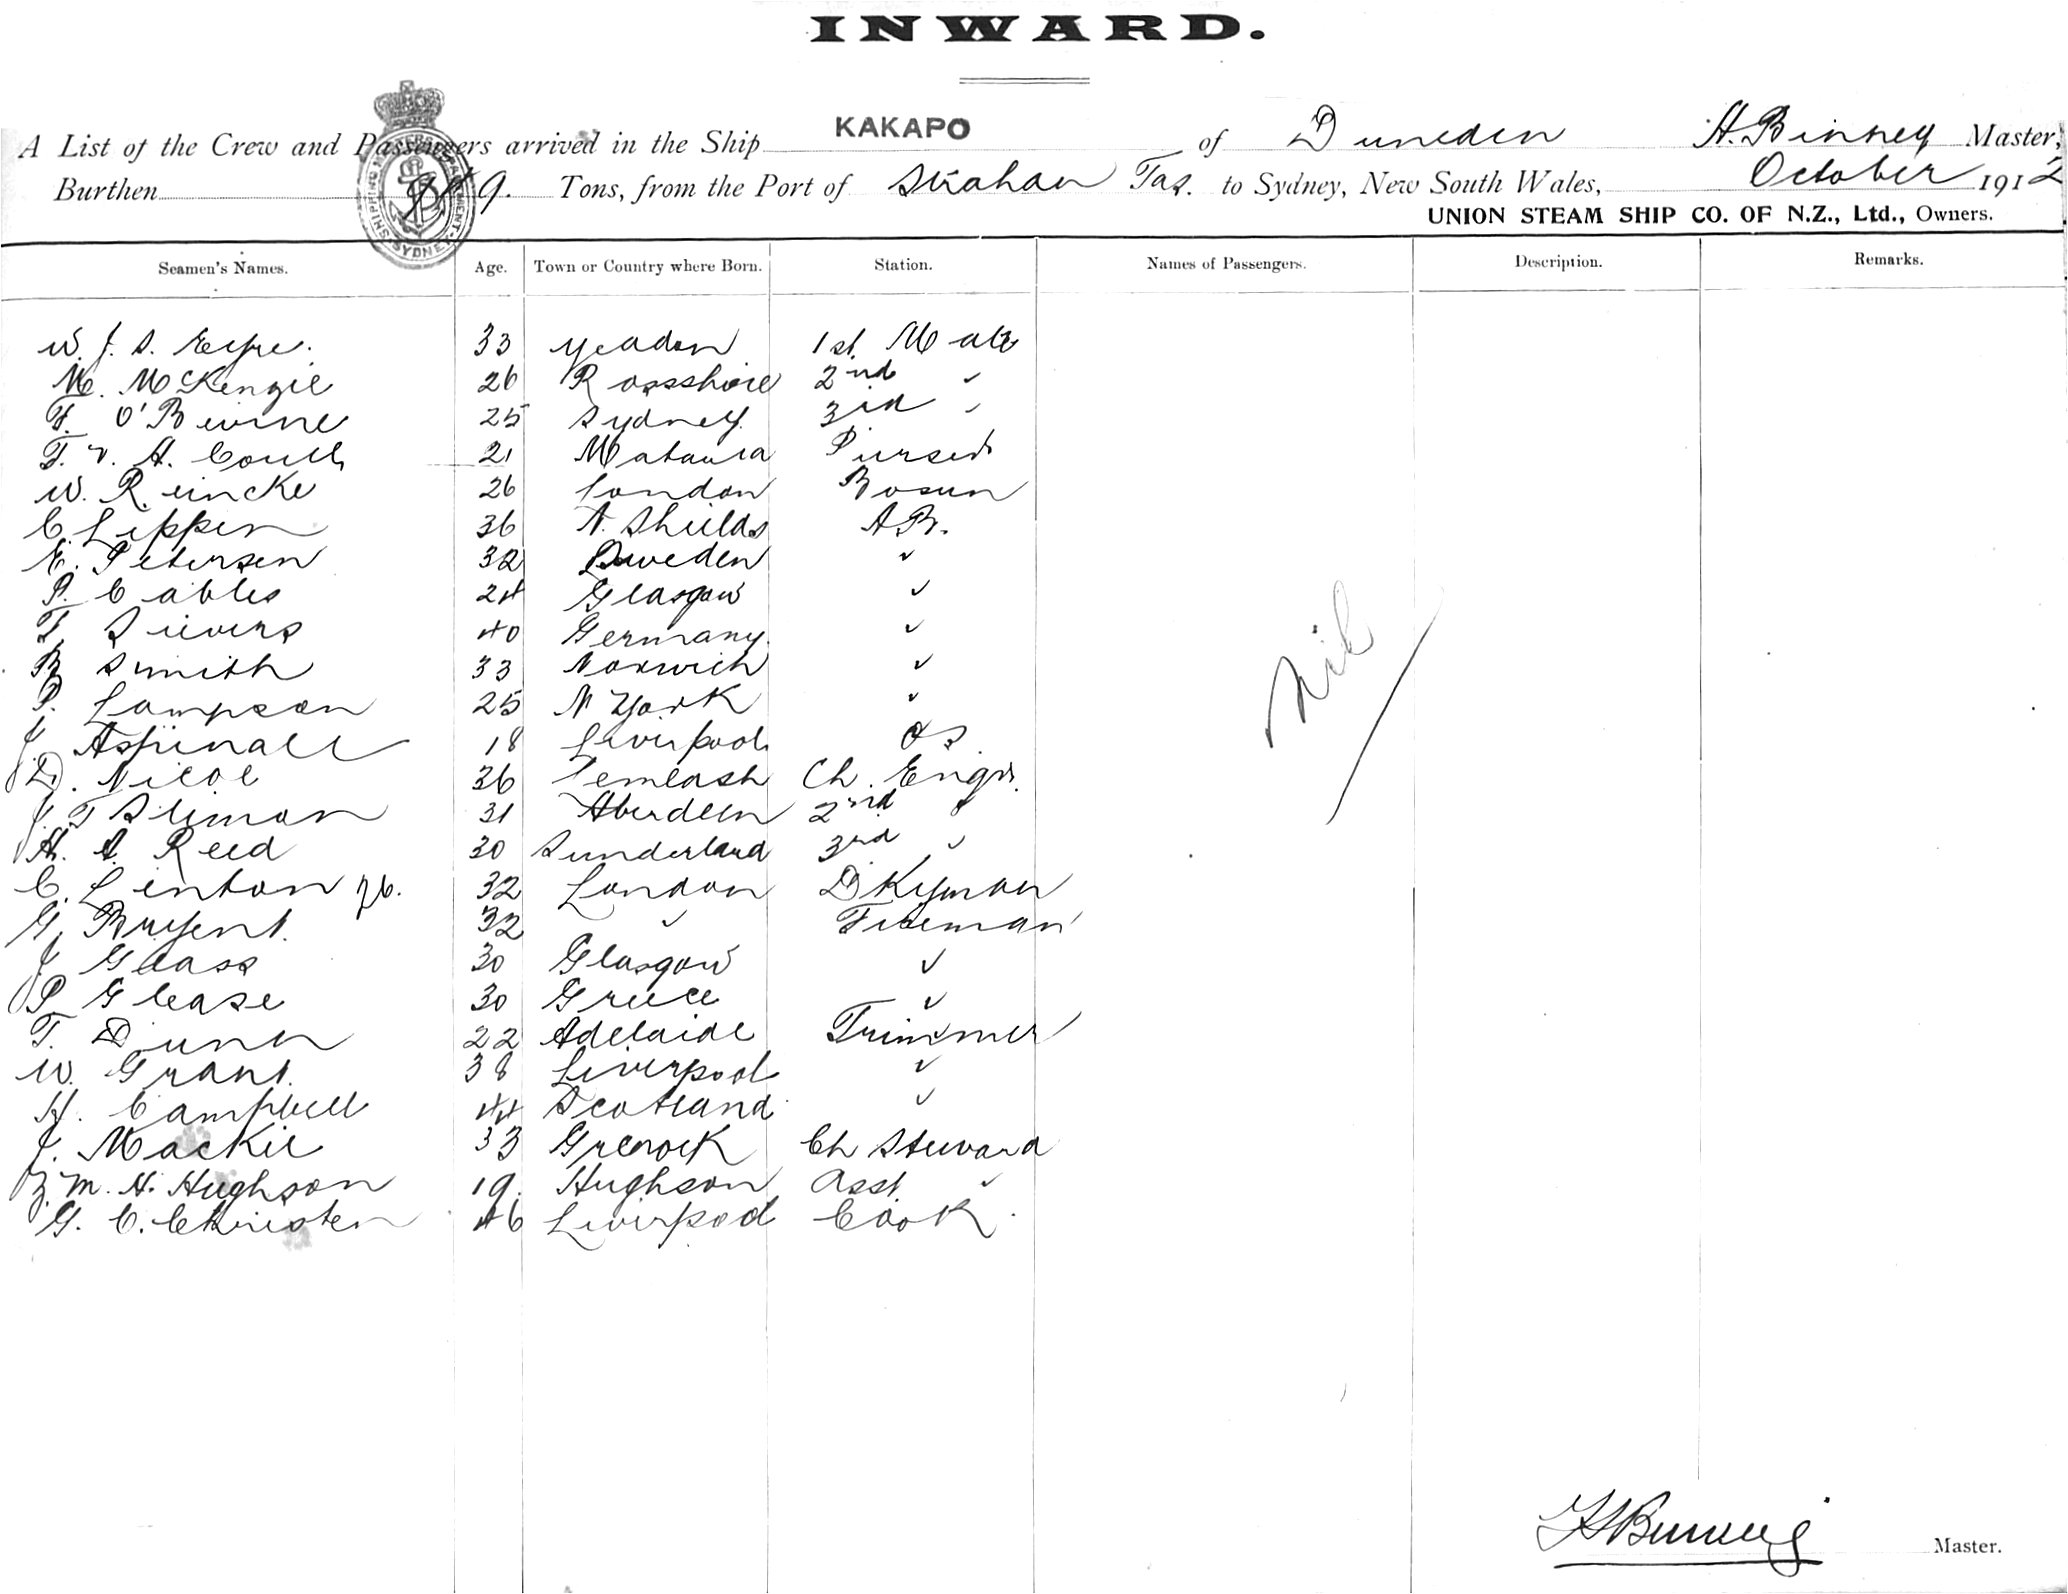 INWARD.
A List of the Crew and Passengers arrived in the Ship KAKAPO of Duneden A. Binney Master,
Burthen Tons, from the Port of Strahan Tas. to Sydney, New South Wales, October 1912
UNION STEAM SHIP CO. OF N.Z., Ltd., Owners.
Seamen's Names. Age. Town or Country where Born. Station. Names of Passengers. Description. Remarks.
W. J. S. Eyre. 33 Yeadon 1st Mate
M. McKenzie 26 Rossshire 2nd "
F. O'Beirne 25 Sydney 3rd "
T. V. A. Couch 21 Mataura Purser
W. Reincke 26 London Bosun
C. Lippen 36 N. Shields AB.
E. Petersen 32 Sweden "
P. Cables 24 Glasgow "
T. Sievers 40 Germany "
B Smith 33 Norwich "
P. Lampson 25 N York "
J Aspinall 18 Liverpool OS
D. Nicol 36 Lemlash Ch. Engr.
J. T Sliman 31 Aberdeen 2nd "
A. A Reed 30 Sunderland 3rd "
C. Linton 32 London DKyman
G. Bryent. 32 " Fireman
J Glass 30 Glasgow "
P Glease 30 Greece "
T. Dunn 22 Adelaide Trimmer
W. Grant. 38 Liverpool "
H. Campbell 44 Scotland "
J. Mackie 33 Grenock Ch Steward
M. H. Hughson 19. Hughson Asst. "
G. C. Christen 46 Liverpool Cook.
Nil
Master.